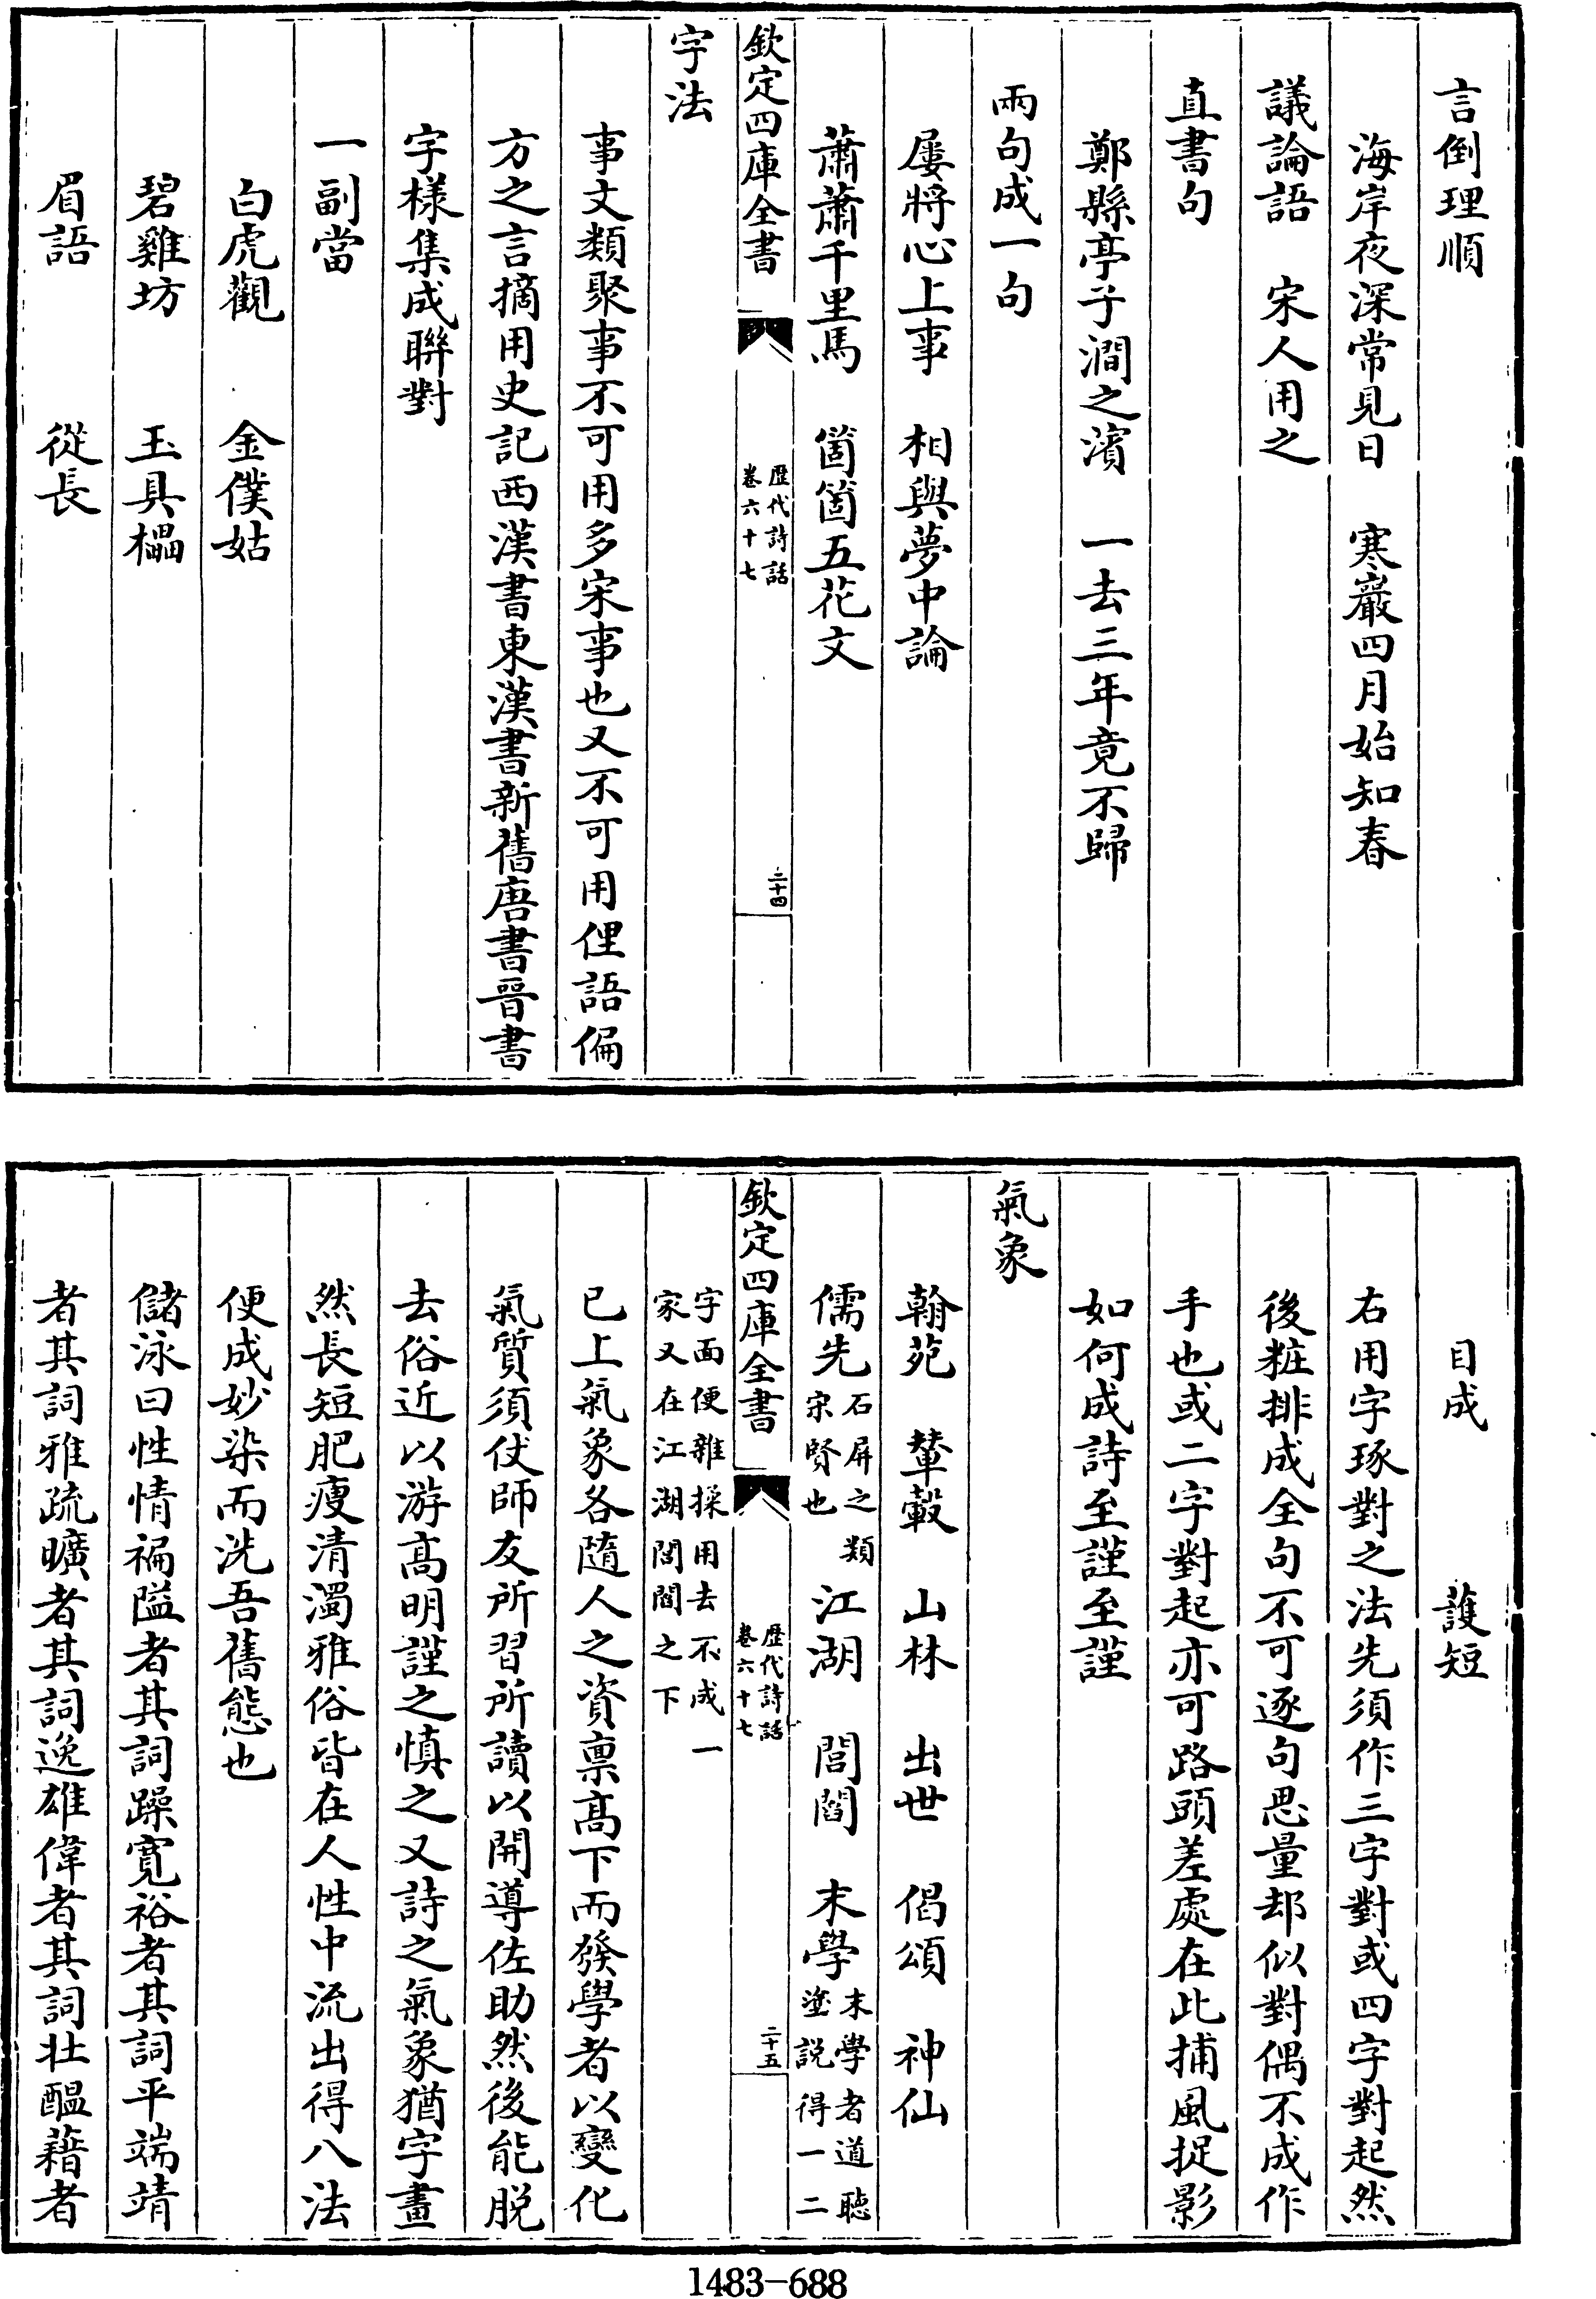 言倒理順
海岸夜深常見日　寒巖四月始知春
議論語　宋人用之
直書句
鄭縣亭子澗之濱　一去三年竟不歸
兩句成一句
屢將心上事　相與夢中論
蕭蕭千里馬　箇箇五花文
欽定四庫全書　歴代詩話卷六十七　二十四
字法
事文類聚事不可用多宋事也又不可用俚語偏
方之言摘用史記西漢書東漢書新舊唐書晉書
字樣集成聯對
一副當
白虎觀　金僕姑
碧雞坊　玉具櫑
眉語　從長
目成　護短
右用字琢對之法先須作三字對或四字對起然
後粧排成全句不可逐句思量却似對偶不成作
手也或二字對起亦可路頭差處在此捕風捉影
如何成詩至謹至謹
氣象
翰苑　輦轂　山林　出世　偈頌　神仙
儒先石屏之類宋賢也　江湖　閭閻　末學末學者道聽塗説得一二
欽定四庫全書　歴代詩話卷六十七　二十五
字面便雜採用去不成一家又在江湖閭閻之下
已上氣象各隨人之資禀高下而發學者以變化
氣質須仗師友所習所讀以開導佐助然後能脱
去俗近以游高明謹之慎之又詩之氣象猶字畫
然長短肥瘦清濁雅俗皆在人性中流出得八法
便成妙染而洗吾舊態也
儲泳曰性情褊隘者其詞躁寛裕者其詞平端靖
者其詞雅疏曠者其詞逸雄偉者其詞壯醖藉者
1483-688